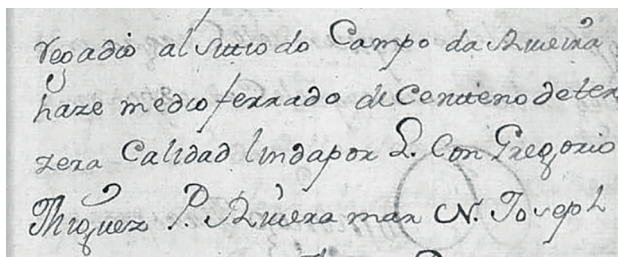 regadio al sitio do Campo da Riveira
haze medio ferrado de Centeno de ter
zera Calidad linda por L. Con Gregorio
P. Rivera mar N. Joseph